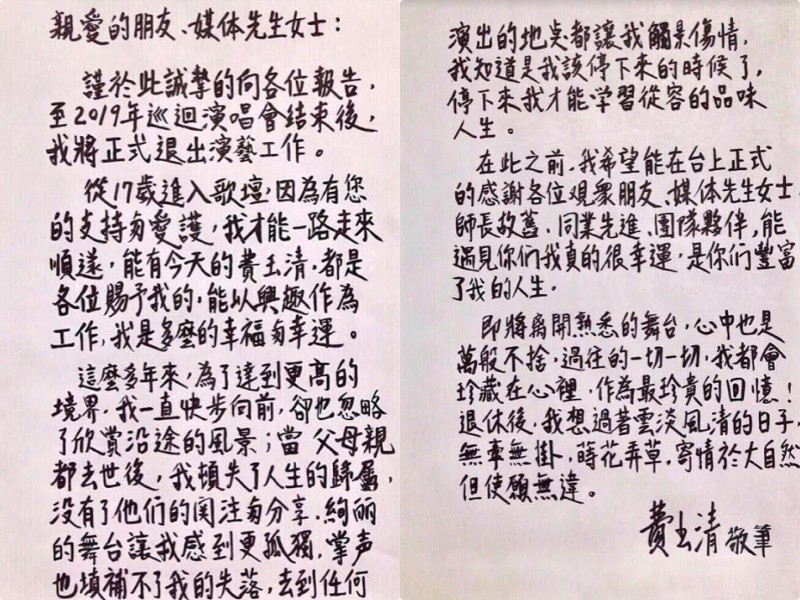 親愛的朋友、媒体先生女士：
謹於此誠摯的向各位報告，
至2019年巡迴演唱會結束後，
我將正式退出演藝工作。
從17歲進入歌壇，因為有您
的支持與愛護，我才能一路走來
順遂，能有今天的費玉清，都是
各位賜予我的，能以興趣作為
工作，我是多麼的幸福與幸運。
這麼多年來，為了達到更高的
境界，我一直快步向前，卻也忽略
了欣賞沿途的風景；當父母親
都去世後，我頓失了人生的歸屬，
沒有了他們的関注與分享，絢丽
的舞台讓我感到更孤獨，掌声
也填補不了我的失落，去到任何
演出的地点都讓我觸景傷情，
我知道是我該停下來的時候了，
停下來我才能学習從容的品味
人生。
在此之前，我希望能在台上正式
的感謝各位观眾朋友、媒体先生女士、
師長故舊、同業先進、團隊夥伴，能
遇見你們我真的很幸運，是你們豐富
了我的人生。
即將离開熟悉的舞台，心中也是
萬般不捨，過往的一切一切，我都會
珍藏在心裡，作為最珍貴的回憶！
退休後，我想過著雲淡風清的日子，
無牽無掛，蒔花弄草，寄情於大自然
但使願無違。
費玉清 敬筆